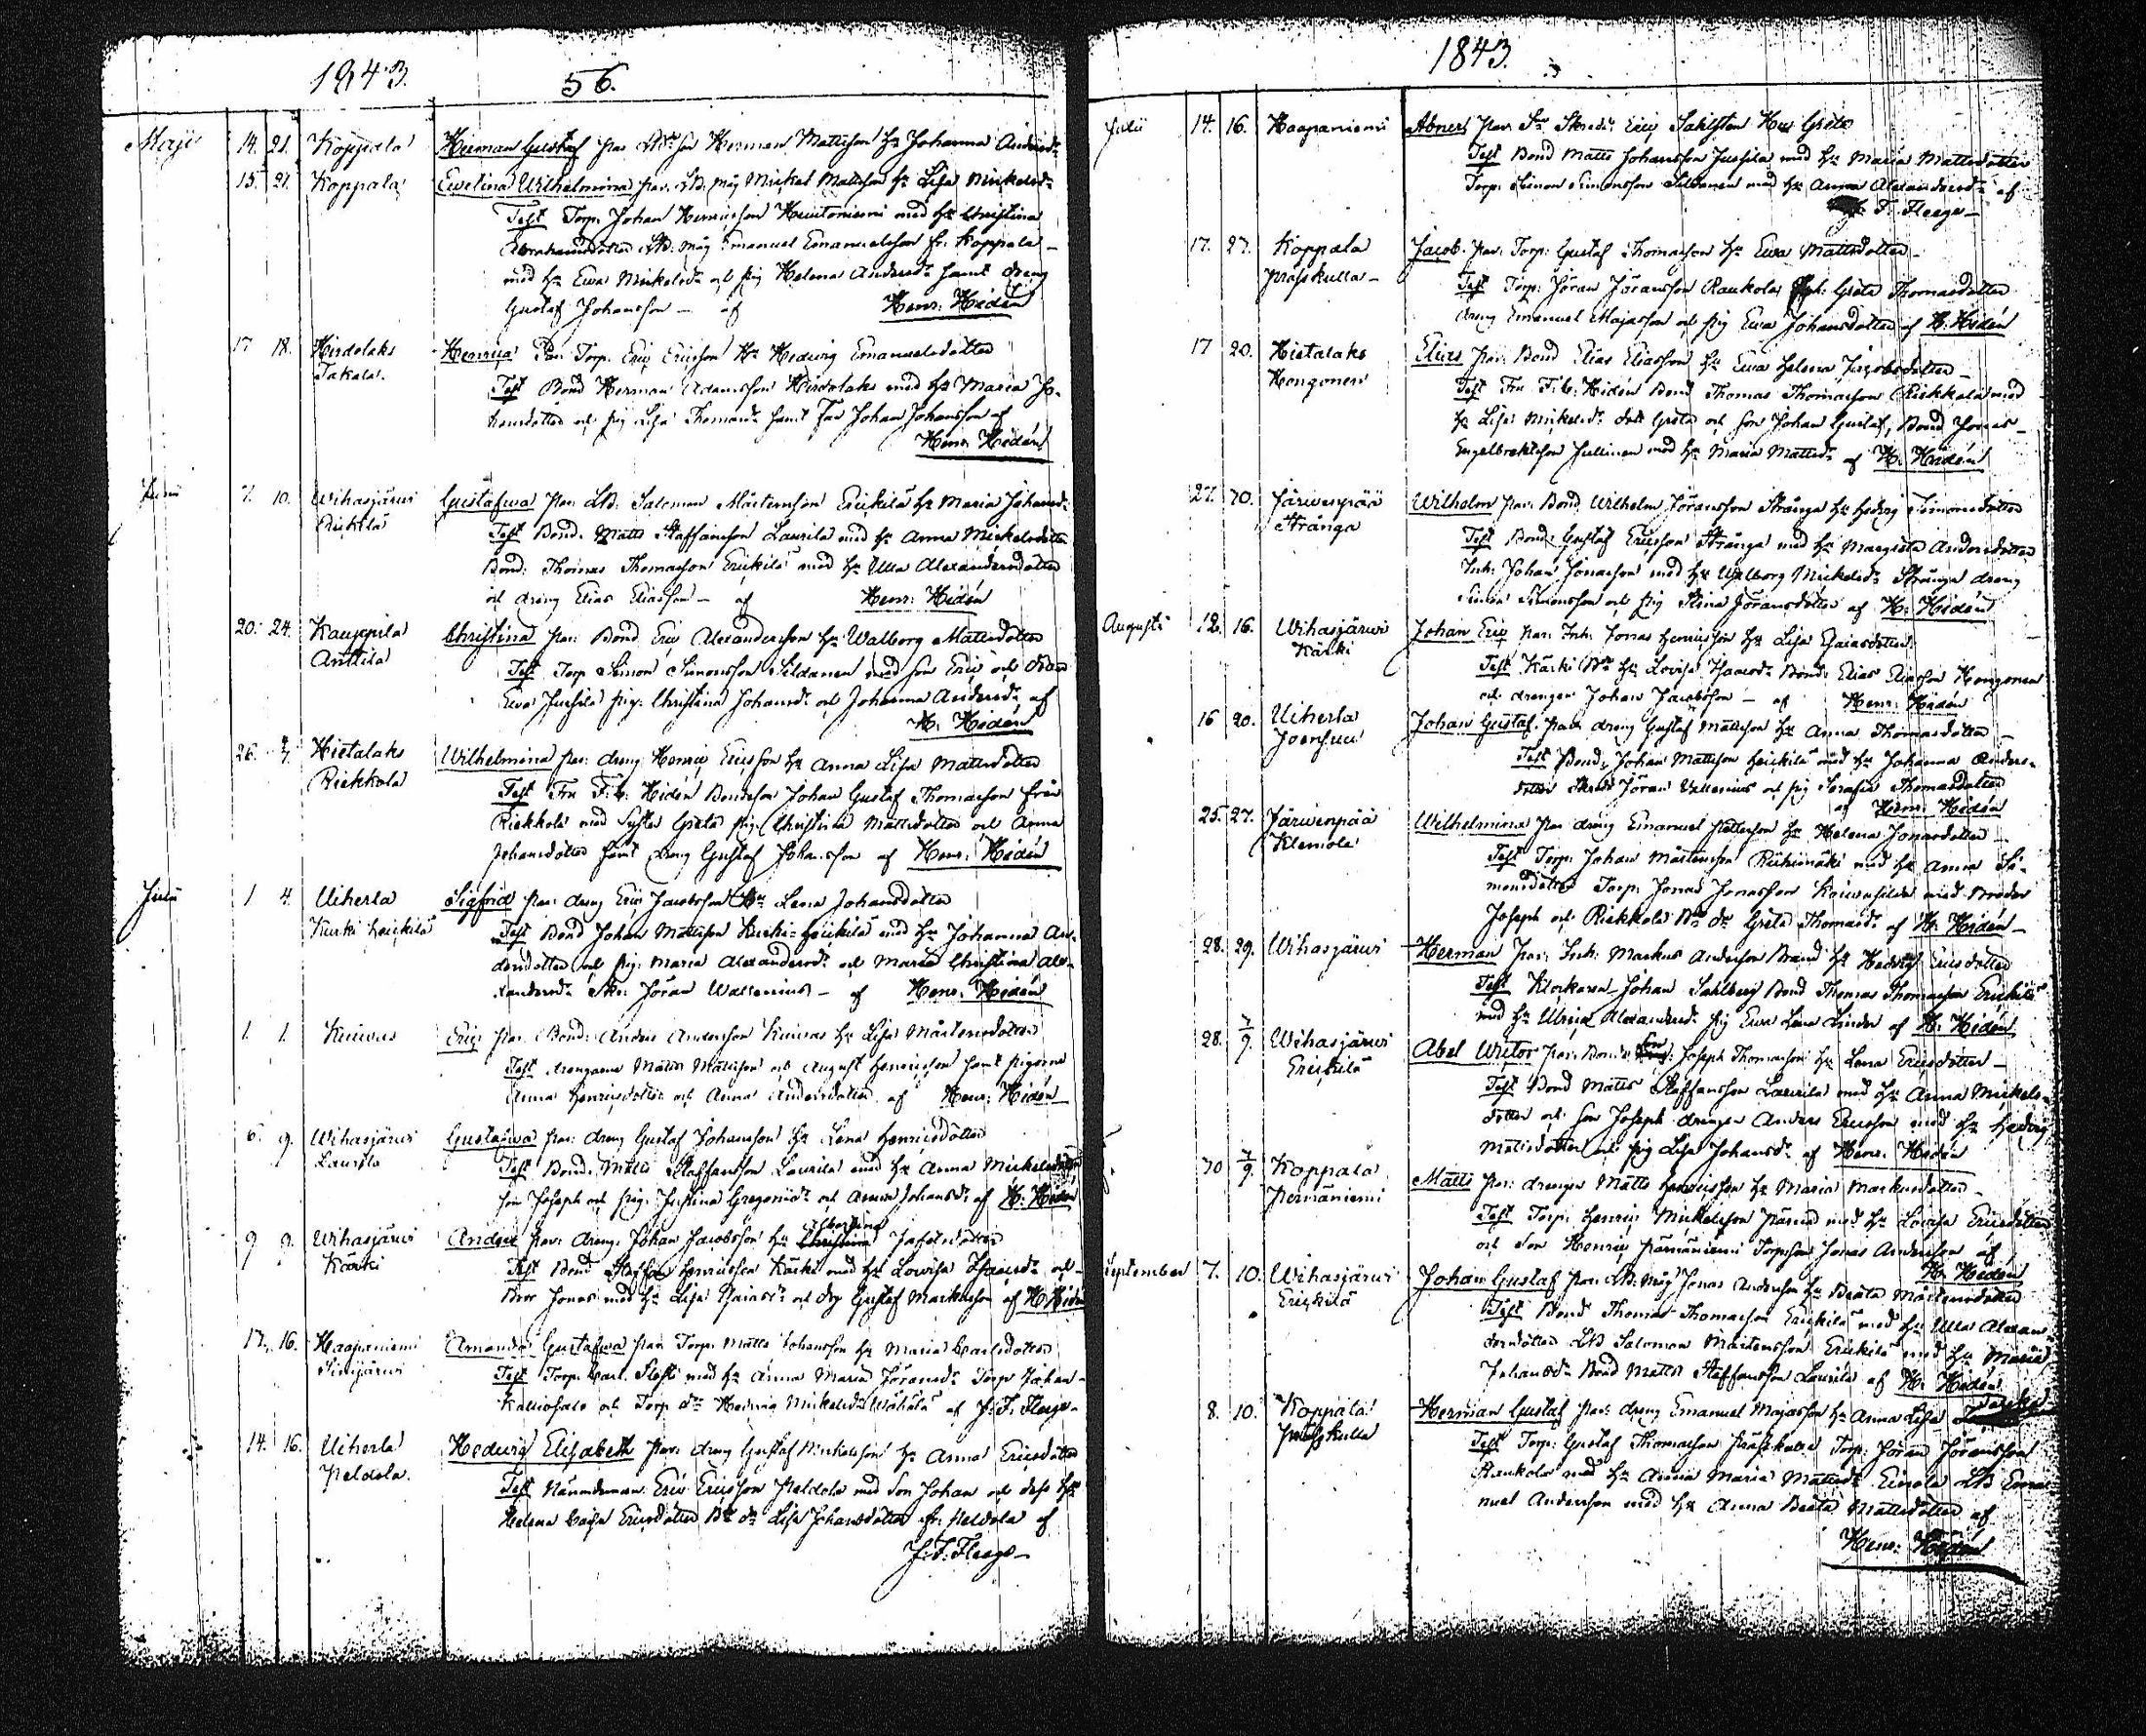 1843. 56.
Maji 14. 21. Koppala Herman Gustaf par. Herman Mattsson Hu Johanna
15. 21. Koppala Ewelina Wilhelmina par. måg Mickel Mattsson hu Lisa Mickelsdr
Test Torp. Johan Henricsson med hu Christina
Abrahamsdotter måg Emanuel Emanuelsson fr. Koppala
med hu Ewa Mickelsdr och pig Helena Andersdr samt dreng
Gustaf Johansson – af Henr: Hidén
17 18. Hirdolaks Henrica Par. Torp. Eric Ericsson Hu Hedwig Emanuelsdotter
Takala. Test Bond Herman Adamsson Hirdolaks med hu Maria Jo-
hansdotter och pig Lisa Thomasdr samt Johan Johansson af
Henr: Hidén
Juni 7. 10. Wihasjärwi Gustafwa par. Salomon Mårtensson Erickilä hu Maria Johansdr
Test Bond. Matts Staffansson Laurila med hu Anna Mickelsdotter
Bond: Thomas Thomasson Erickilä med hu Ulla Alexandersdotter
och dreng Elias Eliasson – af Henr: Hidén
20. 24. Kauppila Christina par. Bond Eric Alexandersson hu Walborg Mattsdotter
Anttila Test Torp Simon Simonsson Sildanen med son Eric och
Ewa Jussila pig. Christina Johansdr och Johanna Andersdr af
H. Hidén
26. 2/7 Hietalaks Wilhelmina par. dreng Henric Ericsson hu Anna Lisa Mattsdotter
Riekkola Test Fru F: C: Hidén Bondeson Johan Gustaf Thomasson från
Riekkola med syster Greta pig. Christina Mattsdotter och Anna
Johansdotter samt dreng Gustaf Johansson af Henr: Hidén
Julii 1 4. Uiherla Sigfrid par. dreng Eric Jacobsson Hu Lena Johansdotter
Kurki heickilä Test Bond Johan Mattsson Kurki-heickilä med hu Johanna An-
dersdotter och pig. Maria Alexandersdr och Maria Christina Alex-
andersdr Jöran Wallenius – af Henr: Hidén
1. 1. Eric par. Bond: Anders Andersson hu Lisa Mårtensdotter
Test drengarne Matts Mattsson och August Henricsson samt pigorne
Anna Henricsdotter och Anna Andersdotter af Henr: Hidén
6. 9. Wihasjärwi Gustafwa par. dreng Gustaf Johansson hu Lena Henricsdotter
Laurila Test Bond. Matts Staffansson Laurila med hu Anna Mickelsdotter
son Joseph och pig. Justina Gregoriidr och Anna Johansdr af H. Hidén
9 9. Wihasjärwi Anders par. dreng. Johan Jacobsson hu Jafetsdotter
Kärki Test Bond Staffan Henricsson Kärki med hu Lowisa Isaacsdr och
Bror Jonas med hu Lisa Esaiasdr och dreng Gustaf Markusson af H Hidén
13. 16. Haapaniemi Amanda Gustafwa par Torp. Matts Johansson hu Maria Carlsdotter
Test Torp. Carl med hu Anna Maria Jöransdr Torp Johan
Kalliosalo och Torp. dr Hedwig Mickelsdr af J. F. Fleege.
14. 16. Uiherla Hedwig Elisabeth par. dreng Gustaf Mickelsson hu Anna Ericsdotter
Peldola. Test Nämndeman Eric Ericsson Peldola med son Johan och dess hu
Helena Caisa Ericsdotter Bdr dr Lisa Johansdotter fr. Peldola af
J: F: Fleege
1843.
Julii 14. 16. Haapaniemi Abner par. Eric Sahlsten Hu Greta
Test Bond Matts Johansson Jussila med hu Maria Mattsdotter
Torp. Simon Simonsson Sildanen med hu Anna Alexandersdr af
F. Fleege
17. 27. Koppala Jacob. par. Torp: Gustaf Thomasson hu Ewa Mattsdotter
Prässkulla – Test Torp: Jöran Jöransson Raukola Greta Thomasdotter
dreng Emanuel Majasson och pig Ewa Johansdotter af H. Hidén
17 20. Hietalaks Elias par. Bond Elias Eliasson hu Ewa Helena Jacobsdotter
Hongonen Test Fru F: C: Hidén Bond Thomas Thomasson Riekkola med
hu Lisa Mickelsdr dotr Greta och son Johan Gustaf, Bond Jonas
Engelbrektsson Jullinen med hu Maria Mattsdr af H. Hidén
27. 30. Järwenpää Wilhelm par. Bond. Wilhelm Jöransson Strånga hu Hedvig Simonsdotter
Strånga Test Bond: Gustaf Ericsson Strånga med hu Margreta Andersdotter
Inh: Johan Jonasson med hu Walborg Mickelsdr Strånga dreng
Simon Simonsson och pig Stina Jöransdotter af H. Hidén
Augusti 12. 16. Wihasjärwi Johan Eric par. Inh. Jonas Henricsson hu Lisa Esaiasdotter.
Kärki Test Kärki hu Lovisa Isaacsdr Bond: Elias Eliasson Hongonen
och drengen Johan Jacobsson – af Henr: Hidén
16 20. Uiherla Johan Gustaf. par. dreng Gustaf Mattsson hu Anna Thomasdotter
Joensuu Test Bond. Johan Mattsson Heickilä med hu Johanna Anders-
dotter Jöran Vallenius och pig Serafia Thomasdotter
af Henr: Hidén
25. 27. Järwenpää Wilhelmina par dreng Emanuel Pettersson hu Helena Jonasdotter
Klemola Test Torp: Johan Mårtensson Riihimäki med hu Anna Si-
monsdotter Torp: Jonas Jonasson med Broder
Joseph och Riekkola dr Greta Thomasdr af H. Hidén
28. 29. Wihasjärwi Herman par. Inh: Markus Andersson Brand hu Hedwig Ericsdotter
Test Klockaren Johan Sahlberg Bond Thomas Thomasson Erickilä
med hu Ulrica Alexandersdr pig Ewa Lena Linder af H: Hidén
28. 3/9. Wihasjärwi Abel Wictor par. Bonde Joseph Thomasson hu Lena Ericsdotter
Erickilä Test Bond Matts Staffansson Laurila med hu Anna Mickels-
dotter och son Joseph drengen Anders Ericsson med hu Hedvig
Mattsdotter och pig Lisa Johansdr af Henr. Hidén
30 3/9. Koppala Matts par: drengen Matts Henricsson hu Maria Markusdotter
Permäniemi Test Torp. Henric Mickelsson med hu Lovisa Ericsdotter
och son Henric Permäniemi Torpson Jonas Andersson af
H. Hidén
September 7. 10. Wihasjärwi Johan Gustaf par. måg Jonas Andersson hu Beata Mårtensdotter
Erickilä Test Bond Thomas Thomasson Erickilä med hu Ulla Alexan-
dersdotter Salomon Mårtensson Erickilä med hu Maria
Johansdr Bond Matts Staffansson Laurila af H. Hidén
8. 10. Koppala Herman Gustaf par: dreng Emanuel Majasson hu Anna Lisa
Prässkulla Test Torp: Gustaf Thomasson Prässkulla Torp: Jöran Jöransson
Raukola med hu Anna Maria Mattsdr Eerola Ema-
nuel Andersson med hu Anna Beata Mattsdotter af
Henr: Hidén